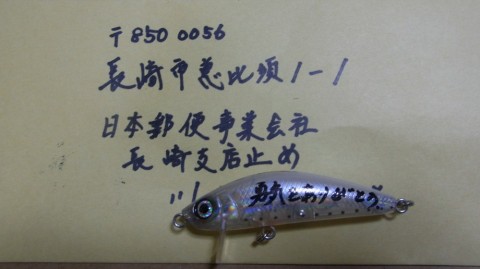 〒850 0056
長崎市恵比須1-1
日本郵便事業会社
長崎支店止め
勇気をありがとう